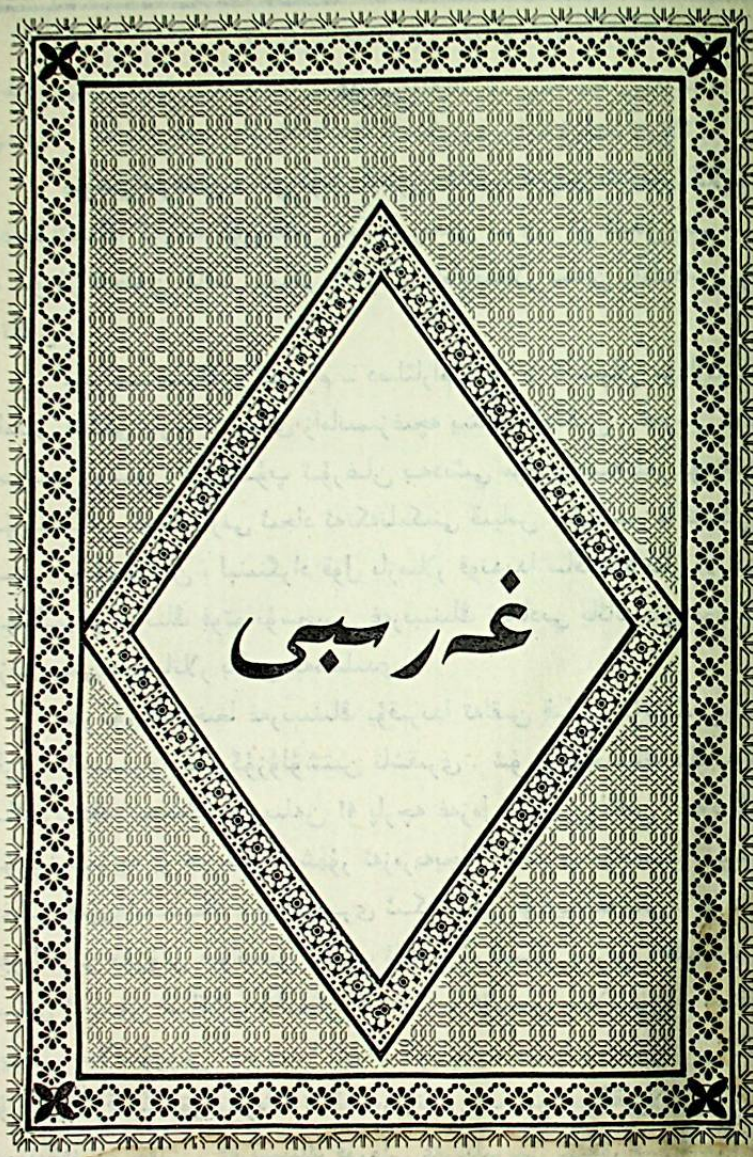 غەرىبى